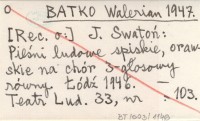 O BATKO Walerian 1947.
[Rec. o:] J. Swatoń:
Pieśni ludowe spiskie, oraw-
skie na chór 3-głosowy
równy, Łódź 1946. -
Teatr Lud. 33, nr - 103.
BT 1003/